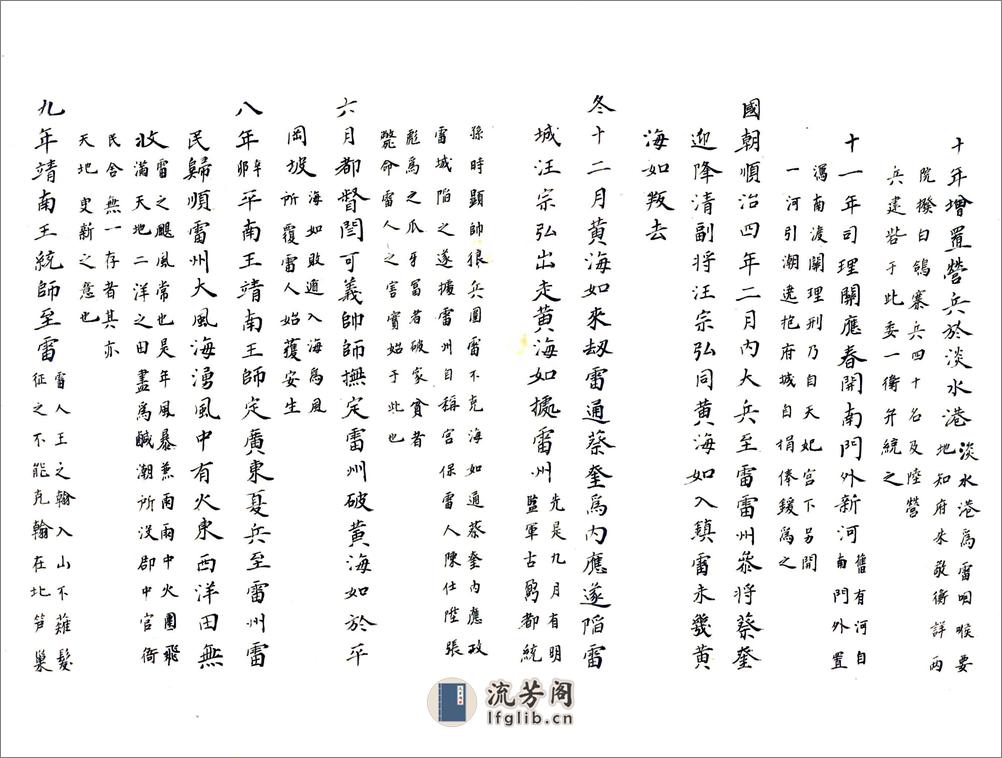 十年增置營兵於淡水港
淡水港為雷咽喉要
地知府朱敬衡詳兩
院撥白鴿寨兵四十名及陸營
兵建砦于此委一衛弁統之
十一年司理關應春開南門外新河
舊有河自
南門外置
馮南渡關理刑乃自天妃宮下另開
一河引潮遶抱府城自捐俸鍰為之
國朝順治四年二月內大兵至雷雷州參將蔡奎
迎降清副將汪宗弘同黃海如入鎮雷未幾黃
海如叛去
冬十二月黃海如來刼雷通蔡奎爲內應遂陷雷
城汪宗弘出走黃海如據雷州
先是九月有明
監軍古鄂都統
孫時顯帥狼兵圍雷不克海如通蔡奎內應政
雷城陷之遂據雷州自稱宮保雷人陳仕陞張
彪為之爪牙富者破家貧者
斃命雷人之害實始于此也
六月都督閆可義帥師撫定雷州破黃海如於平
岡坡
海如敗遁入海為風
所覆雷人始獲安生
八年
辛
卯
平南王靖南王師定廣東夏兵至雷州雷
民歸順雷州大風海湧風中有火東西洋田無
收
雷之颶風常也是年風暴兼雨雨中火團飛
滿天地二洋之田盡為鹹潮所沒郡中官衙
民舍無一存者其亦
天地更新之意也
九年靖南王統師至雷
雷人王之翰入山不薙髮
征之不能克翰在北笋巢
流芳阁
lfglib.cn